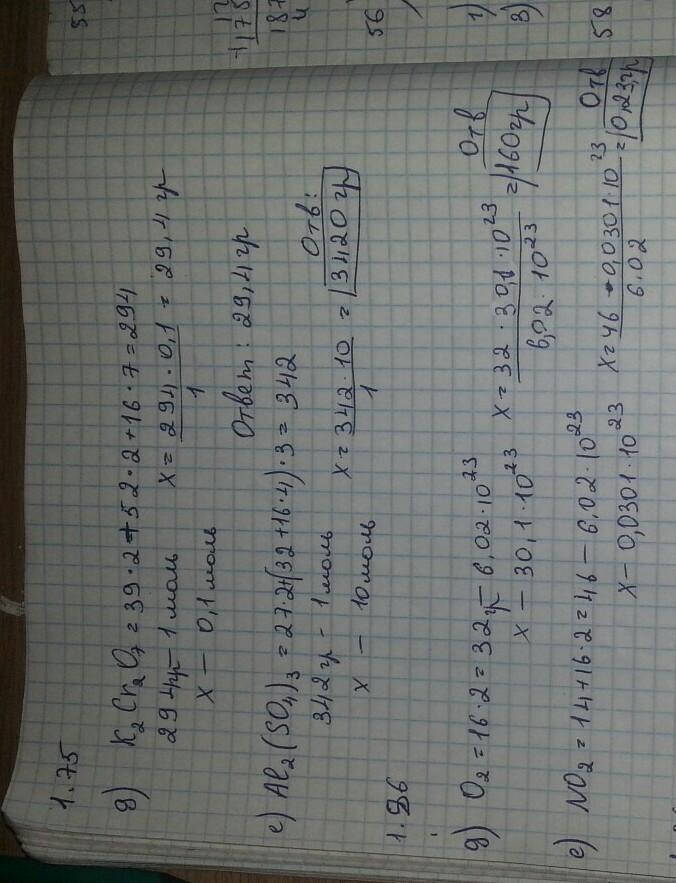 1.75
д) K₂Cr₂O₇ = 39·2+52·2+16·7=294
294гр – 1 моль
x – 0,1 моль
x = 294·0,1 / 1 = 29,4 гр
Ответ: 29,4 гр
е) Al₂(SO₄)₃ = 27·2+(32+16·4)·3 = 342
342 гр – 1 моль
x – 10 моль
x = 342·10 / 1 = 3420 гр
Отв:
1.86
д) O₂ = 16·2 = 32 гр – 6,02·10²³
x – 30,1·10²³
x = 32·30,1·10²³ / 6,02·10²³ = 160 гр
Отв
е) NO₂ = 14+16·2 = 46 – 6,02·10²³
x – 0,0301·10²³
x = 46·0,0301·10²³ / 6.02 = 0,23 гр
Отв
55
187
4
56
1)
3)
58